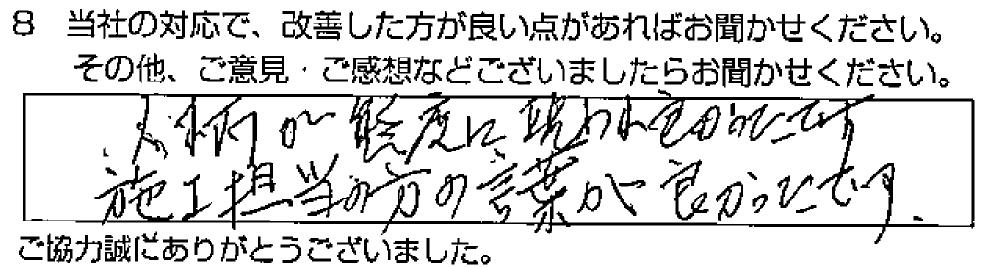 8 当社の対応で、改善した方が良い点があればお聞かせください。
その他、ご意見・ご感想などございましたらお聞かせください。
人柄が態度に現われ良かったです
施工担当の方の言葉が良かったです.
ご協力誠にありがとうございました。